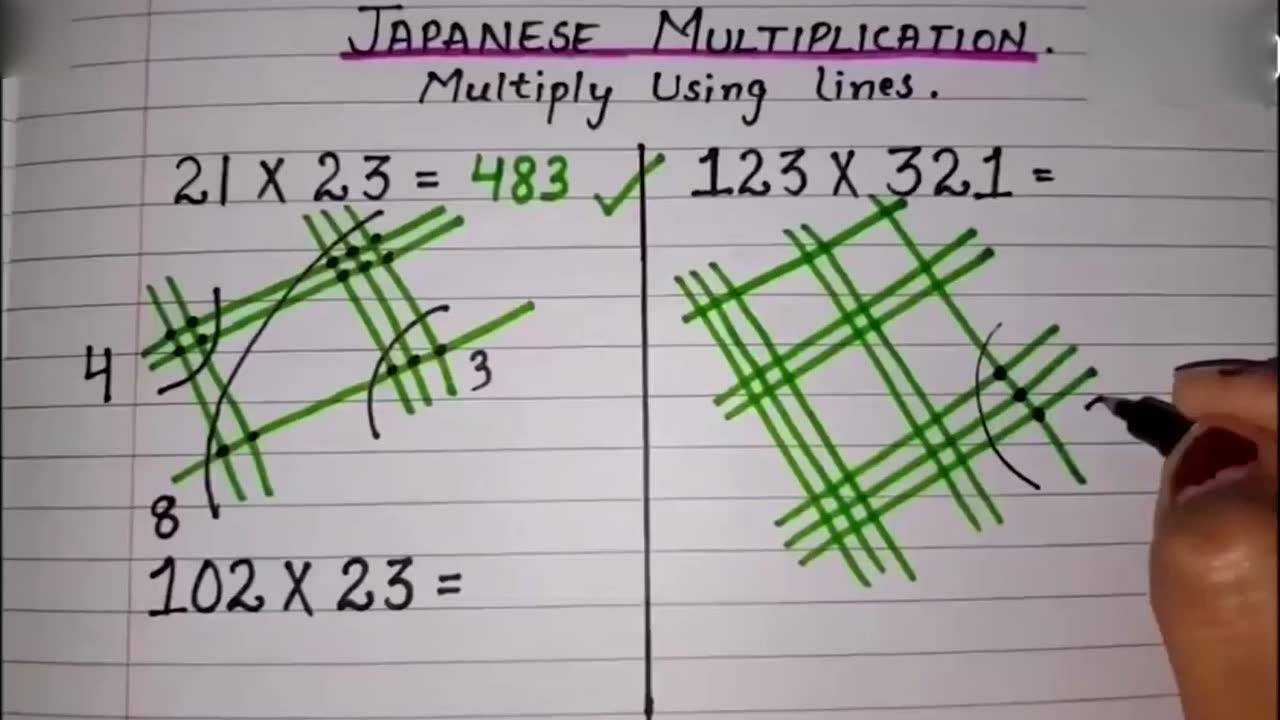 JAPANESE MULTIPLICATION.
Multiply Using lines.
21 X 23 = 483 ✓
4
3
8
102 X 23 =
123 X 321 =